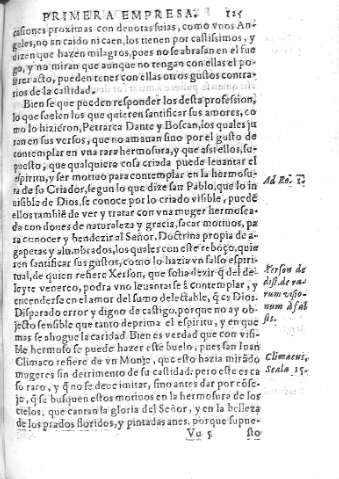 PRIMERA EMPRESA. 125
casiones proximas con deuotas suias, como vnos An-
geles, no an caido ni caen, los tienen por castissimos, y
dizen que hazen milagros, pues no se abrasan en el fue
go, y no miran que aunque no tengan con ellas el po-
strer acto, pueden tener con ellas otros gustos contra-
rios de la castidad.
Bien se que pueden responder los desta profession,
lo que suelen los que quieren santificar sus amores, co
mo lo hizierõn, Petrarca Dante y Boscan, los quales ju
ran en sus versos, que no amauan sino por el gusto de
contemplar en vna rara hermosura, y que assi ellos, su-
puesto, que qualquiera cosa criada puede leuantar el
espiritu, y ser motiuo para contemplar en la hermosu-
ra de su Criador, segun lo que dize san Pablo, que lo in
visible de Dios, se conoce por lo criado visible, puede
ellos tambiẽ de ver y tratar con vna muger hermosea-
da con dones de naturaleza y gracia, sacar motiuos, pa
ra conocer y bendezir al Señor. Doctrina propia de a-
gapetas y alumbrados, los quales con este reboço, quie
ren santificar sus gustos, como lo hazia vn falso espiri-
tual, de quien refiere Xerson, que solia dezir q̃ del de-
leyte venereo, podra vno leuantarse à contemplar, y
encenderse en el amor del sumo delectable, q̃ es Dios.
Disparado error y digno de castigo, porque no ay ob-
jecto sensible que tanto deprima el espiritu, y en que
mas se ahogue la caridad. Bien es verdad que con visi-
ble hermoso se puede hazer este buelo, pues san Iuan
Climaco refiere de vn Monjo, que esto hazia mirãdo
mugeres sin detrimento de su castidad: pero este es ca
so raro, y q̃ no se deue imitar, sino antes dar por cõse-
jo, q̃ se busquen estos motiuos en la hermosura de los
cielos, que cantan la gloria del Señor, y en la belleza
de los prados floridos, y pintadas aues, porque supue-
Vu 5 sto
Ad Ro. 1.
Xerson de
dist. de ua-
rum visio-
num à fal-
sis.
Climacus,
Scala 15.